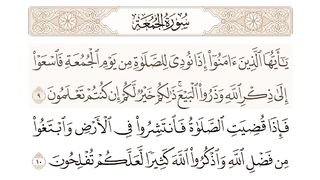 سُورَةُ الجُمُعَةِ
يَٰٓأَيُّهَا ٱلَّذِينَ ءَامَنُوٓا۟ إِذَا نُودِىَ لِلصَّلَوٰةِ مِن يَوْمِ ٱلْجُمُعَةِ فَٱسْعَوْا۟
إِلَىٰ ذِكْرِ ٱللَّهِ وَذَرُوا۟ ٱلْبَيْعَ ۚ ذَٰلِكُمْ خَيْرٌ لَّكُمْ إِن كُنتُمْ تَعْلَمُونَ ٩
فَإِذَا قُضِيَتِ ٱلصَّلَوٰةُ فَٱنتَشِرُوا۟ فِى ٱلْأَرْضِ وَٱبْتَغُوا۟
مِن فَضْلِ ٱللَّهِ وَٱذْكُرُوا۟ ٱللَّهَ كَثِيرًا لَّعَلَّكُمْ تُفْلِحُونَ ١٠